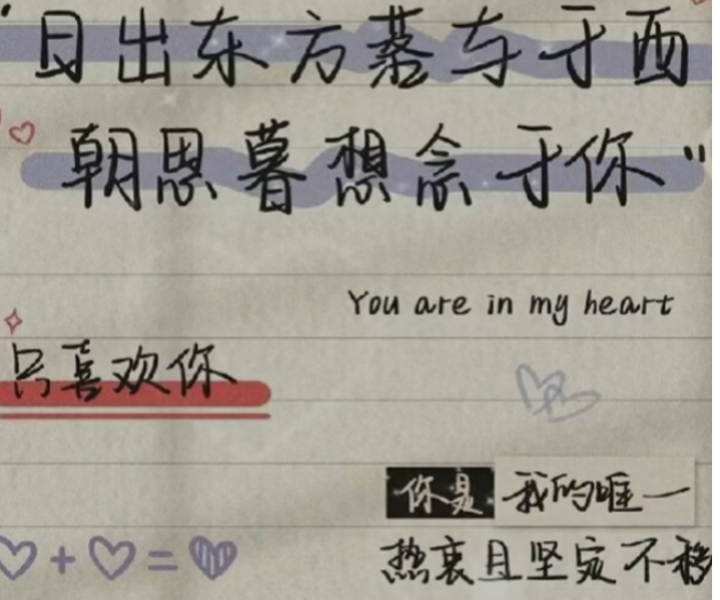 “日出东方落与于西
朝思暮想念于你”
You are in my heart
只喜欢你
你是我的唯一
热衷且坚定不移